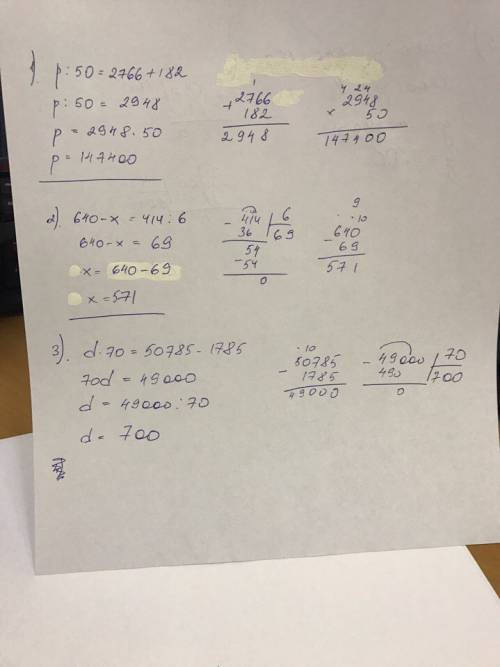 1) p:50=2766+182
p:50 = 2948
p = 2948·50
p= 147400
1
+2766
182
2948
4 24
2948
× 50
147400
2). 640-x=414:6
640-x = 69
x= 640-69
x=571
- 414 | 6
36 | 69
54
-54
0
9
· ·10
-640
69
571
3). d·70=50785-1785
70d = 49000
d = 49000:70
d = 700
·10
- 50785
1785
49000
- 49000 | 70
490 | 700
0